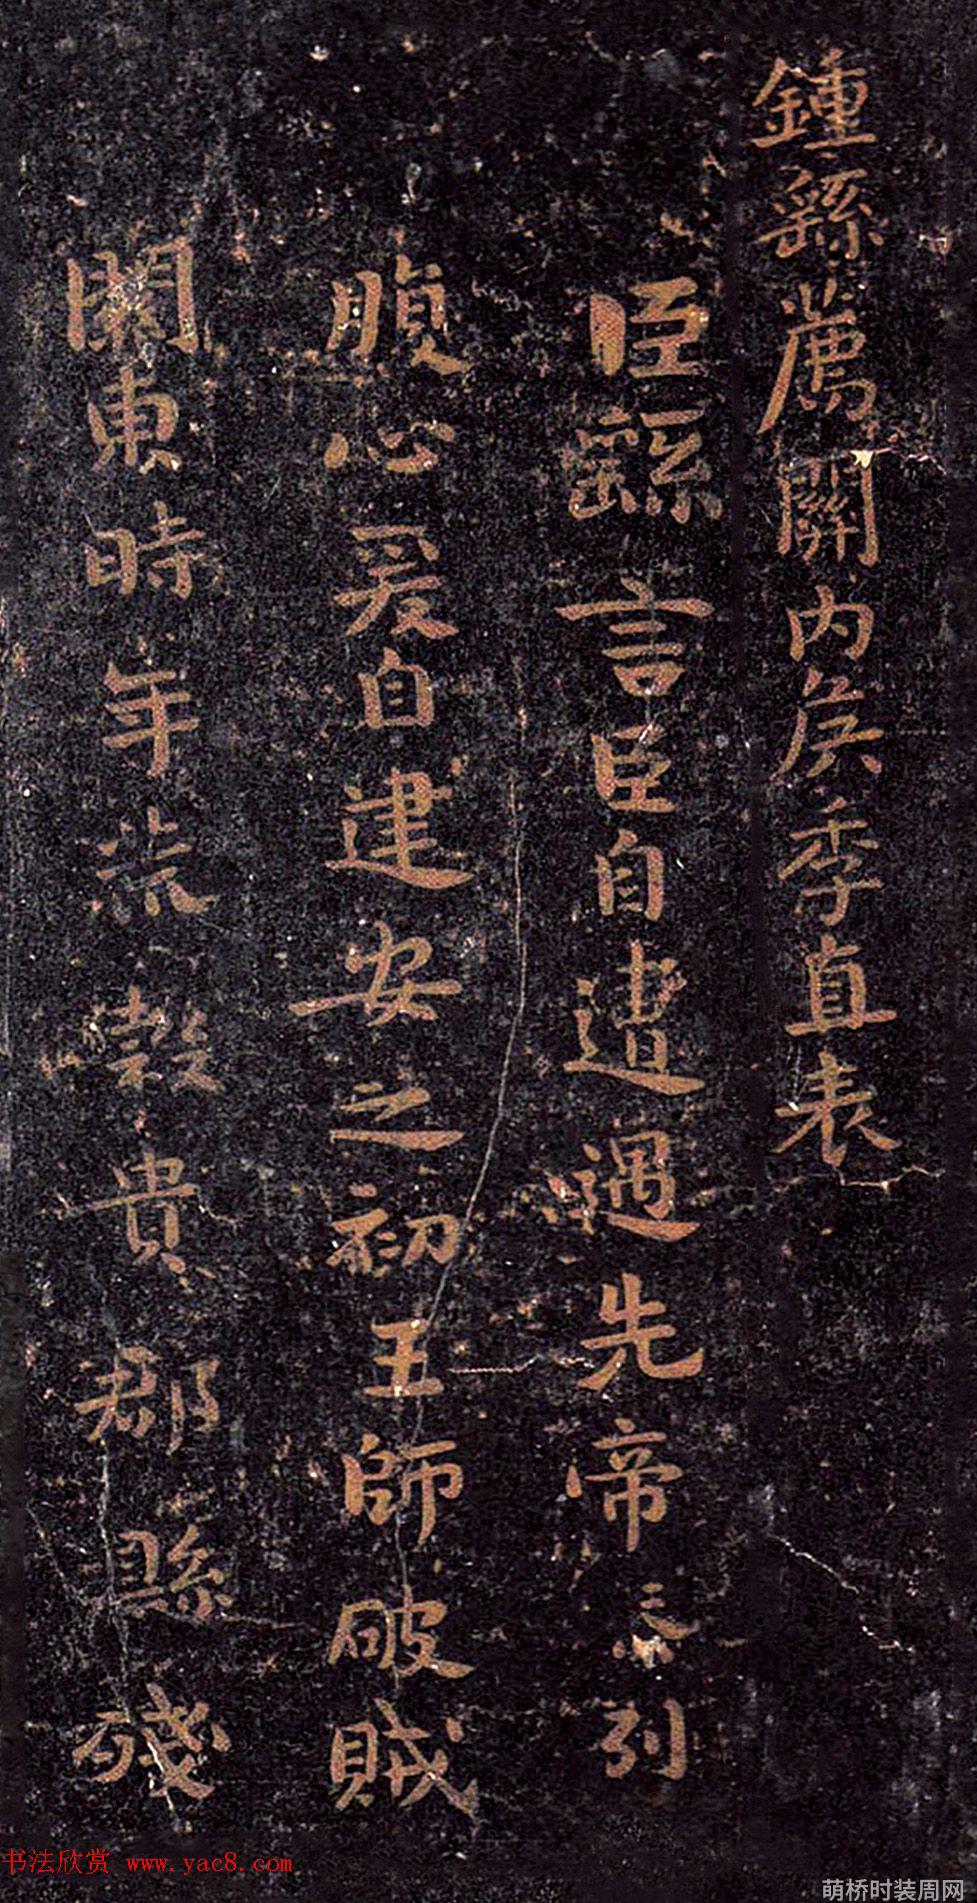 鍾繇薦關内侯季直表
臣繇言臣自遭遇先帝忝列
腹心爰自建安之初王師破賊
關東時年荒穀貴郡縣殘
书法欣赏 www.yac8.com
萌桥时装周网